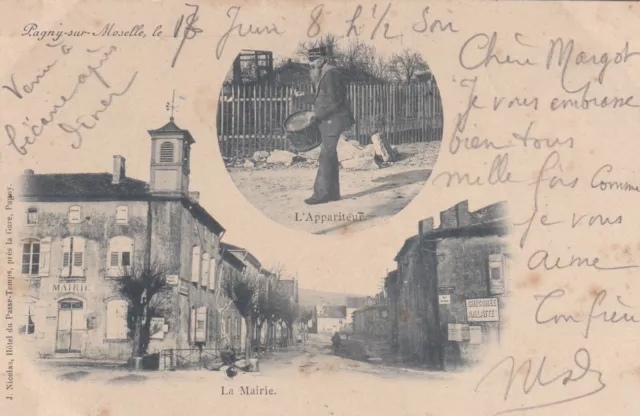 Pagny-sur-Moselle, le 17 Juin 8 h ½ Soir
Venu à
bécane après
diner
Chère Margot
Je vous embrasse
bien tous
mille fois Comme
je vous
aime
L'Appariteur.
MAIRIE
CHICORÉE
La Mairie.
J. Nicolas, Hôtel du Passe-Temps, près la Gare, Pagny.